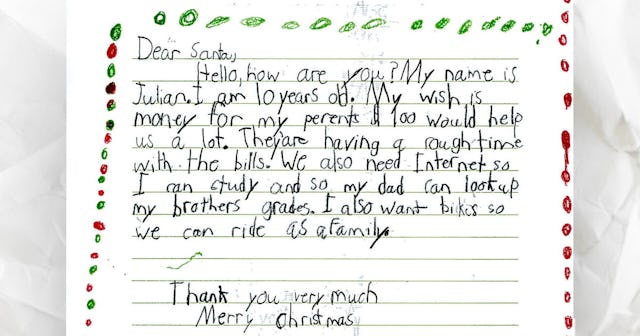 Dear Santa,
Hello, how are you? My name is
Julian. I am 10 years old. My wish is
money for my perents $100 would help
us a lot. They're having a rough time
with the bills. We also need Internet so
I can study and so my dad can look up
my brothers grades. I also want bikes so
we can ride as a family.
Thank you very much
Merry Christmas